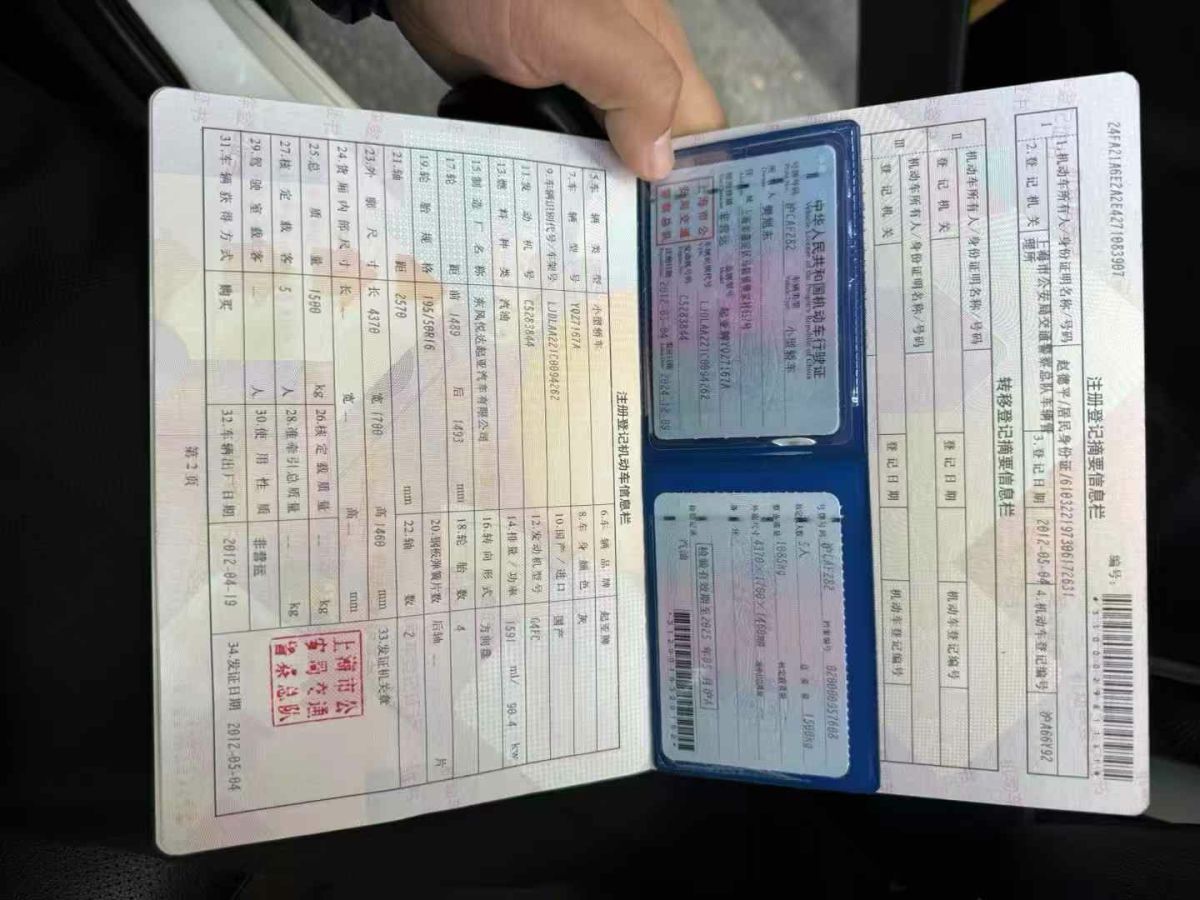 24FA21A6E2A2E4271083907
注册登记摘要信息栏
编号:
Ⅰ 1.机动车所有人/身份证明名称/号码 赵德平/居民身份证/610322197306172631
2.登记机关 上海市公安局交通警察总队车辆管理所 3.登记日期 2012-05-04 4.机动车登记编号 沪A66Y92
转移登记摘要信息栏
Ⅱ 机动车所有人/身份证明名称/号码
登记机关 登记日期 机动车登记编号
Ⅲ 机动车所有人/身份证明名称/号码
登记机关 登记日期 机动车登记编号
中华人民共和国机动车行驶证
Vehicle License of the People's Republic of China
号牌号码 沪CAF282 车辆类型 小型轿车
所有人 樊旭东
住址
使用性质 非营运 品牌型号 起亚牌YQZ7167A
车辆识别代号 LJDLAA221C0094262
发动机号码 CS283844
注册日期 2012-05-04 发证日期 2024-12-09
号牌号码 沪CAF282 档案编号 020000957608
核定人数 5人 总质量 1500kg
整备质量 1085kg 核定载质量
外廓尺寸 4370×1700×1460mm 准牵引总质量
备注
检验有效期至2025年05月沪A
检验记录 汽油
注册登记机动车信息栏
5.车辆类型 小型轿车 6.车辆品牌 起亚牌
7.车辆型号 YQZ7167A 8.车身颜色 灰
9.车辆识别代号/车架号 LJDLAA221C0094262 10.国产/进口 国产
11.发动机号 CS283844 12.发动机型号 G4FC
13.燃料种类 汽油 14.排量/功率 1591 ml/ 90.4 kw
15.制造厂名称 东风悦达起亚汽车有限公司 16.转向形式 方向盘
17.轮距 前 1489 后 1493 mm 18.轮胎数 4
19.轮胎规格 195/50R16 20.钢板弹簧片数 后轴 -- 片
21.轴距 2570 mm 22.轴数 2
23.外廓尺寸 长 4370 宽 1700 高 1460 mm 33.发证机关章
24.货厢内部尺寸 长 -- 宽 -- 高 -- mm
25.总质量 1500 kg 26.核定载质量 -- kg
27.核定载客 5 人 28.准牵引总质量 -- kg
29.驾驶室载客 -- 人 30.使用性质 非营运
31.车辆获得方式 购买 32.车辆出厂日期 2012-04-19 34.发证日期 2012-05-04
上海市公
安局交通
警察总队
第2页